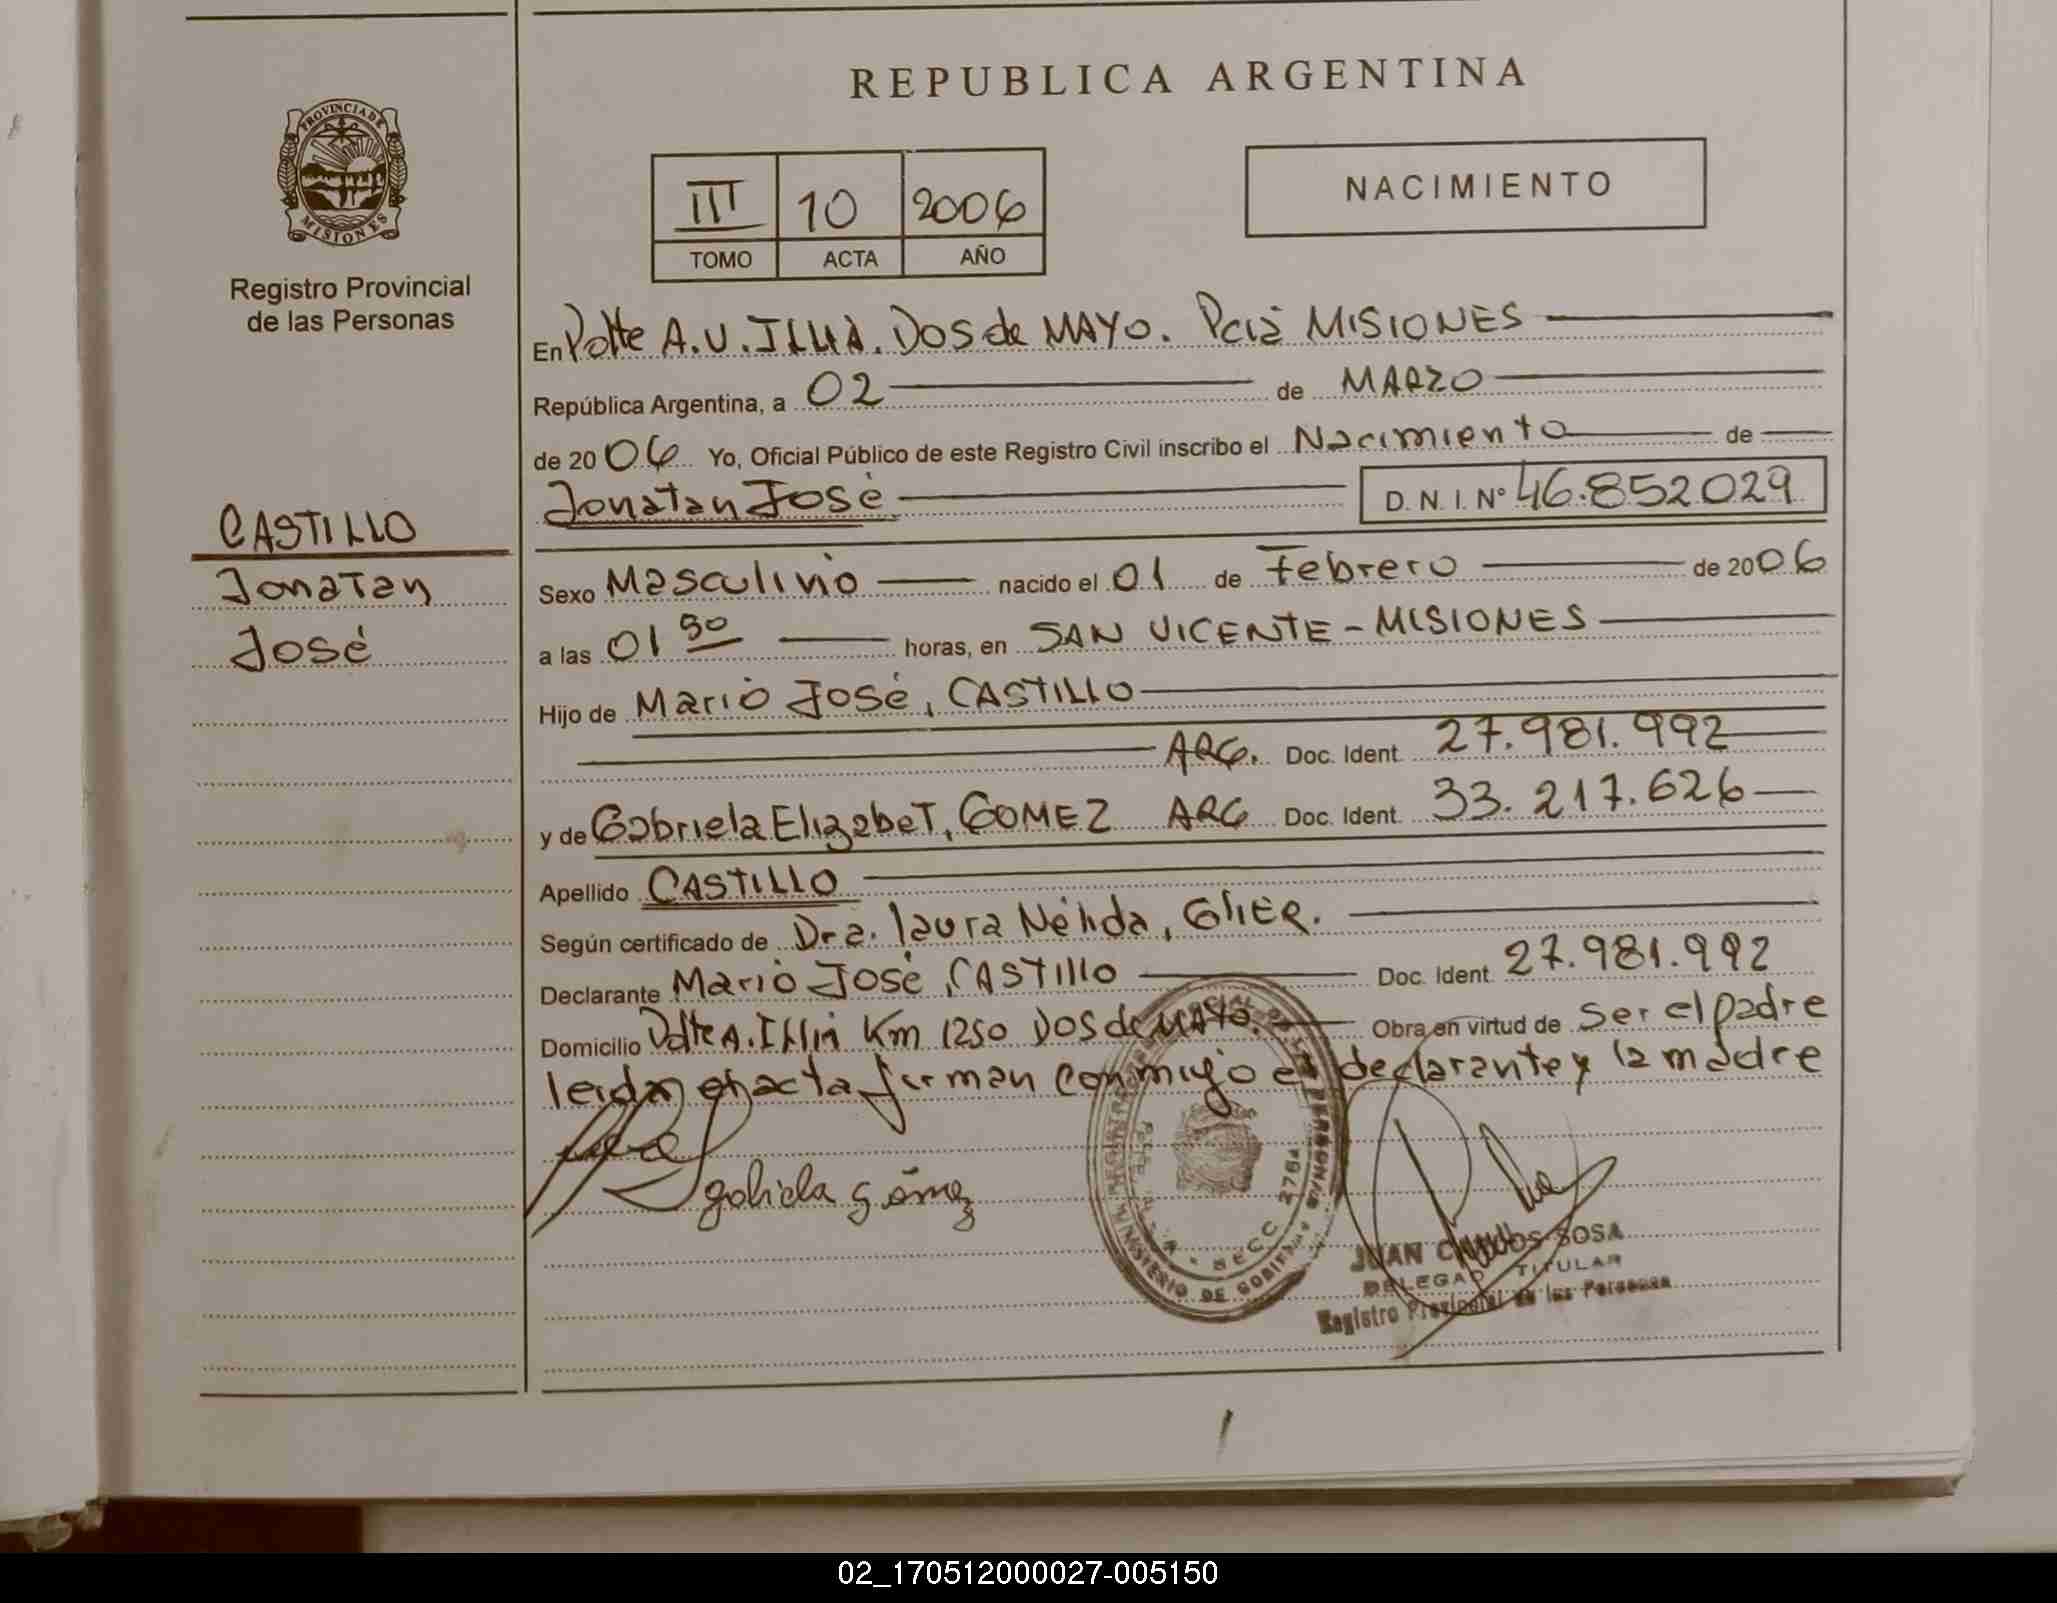 REPUBLICA ARGENTINA
PROVINCIA DE
MISIONES
Registro Provincial
de las Personas
III 10 2006
TOMO ACTA AÑO
NACIMIENTO
En Pdte A.U. ILLIA. DOS de MAYO. Pcia MISIONES
República Argentina, a 02 de MARZO
de 20 06 Yo, Oficial Público de este Registro Civil inscribo el Nacimiento de
Jonatan José D. N. I. Nº 46.852.029
CASTILLO
Jonatan
José
Sexo Masculino nacido el 01 de Febrero de 20 06
a las 01 horas, en SAN VICENTE - MISIONES
Hijo de Mario José, CASTILLO
ARG. Doc. Ident. 27.981.992
y de Gabriela Elizabet, GOMEZ ARG Doc. Ident. 33.217.626
Apellido CASTILLO
Según certificado de Dra. Laura Nélida,
Declarante Mario José, CASTILLO Doc. Ident. 27.981.992
Domicilio Pdte A. Illia Km 1250 DOS de MAYO. Obra en virtud de Ser el padre
leida el acta firman conmigo el declarante y la madre
gabriela gómez
MINISTERIO DE GOBIERNO
SECC 2754
JUAN CARLOS SOSA
DELEGADO TITULAR
Registro Provincial de las Personas
02_170512000027-005150